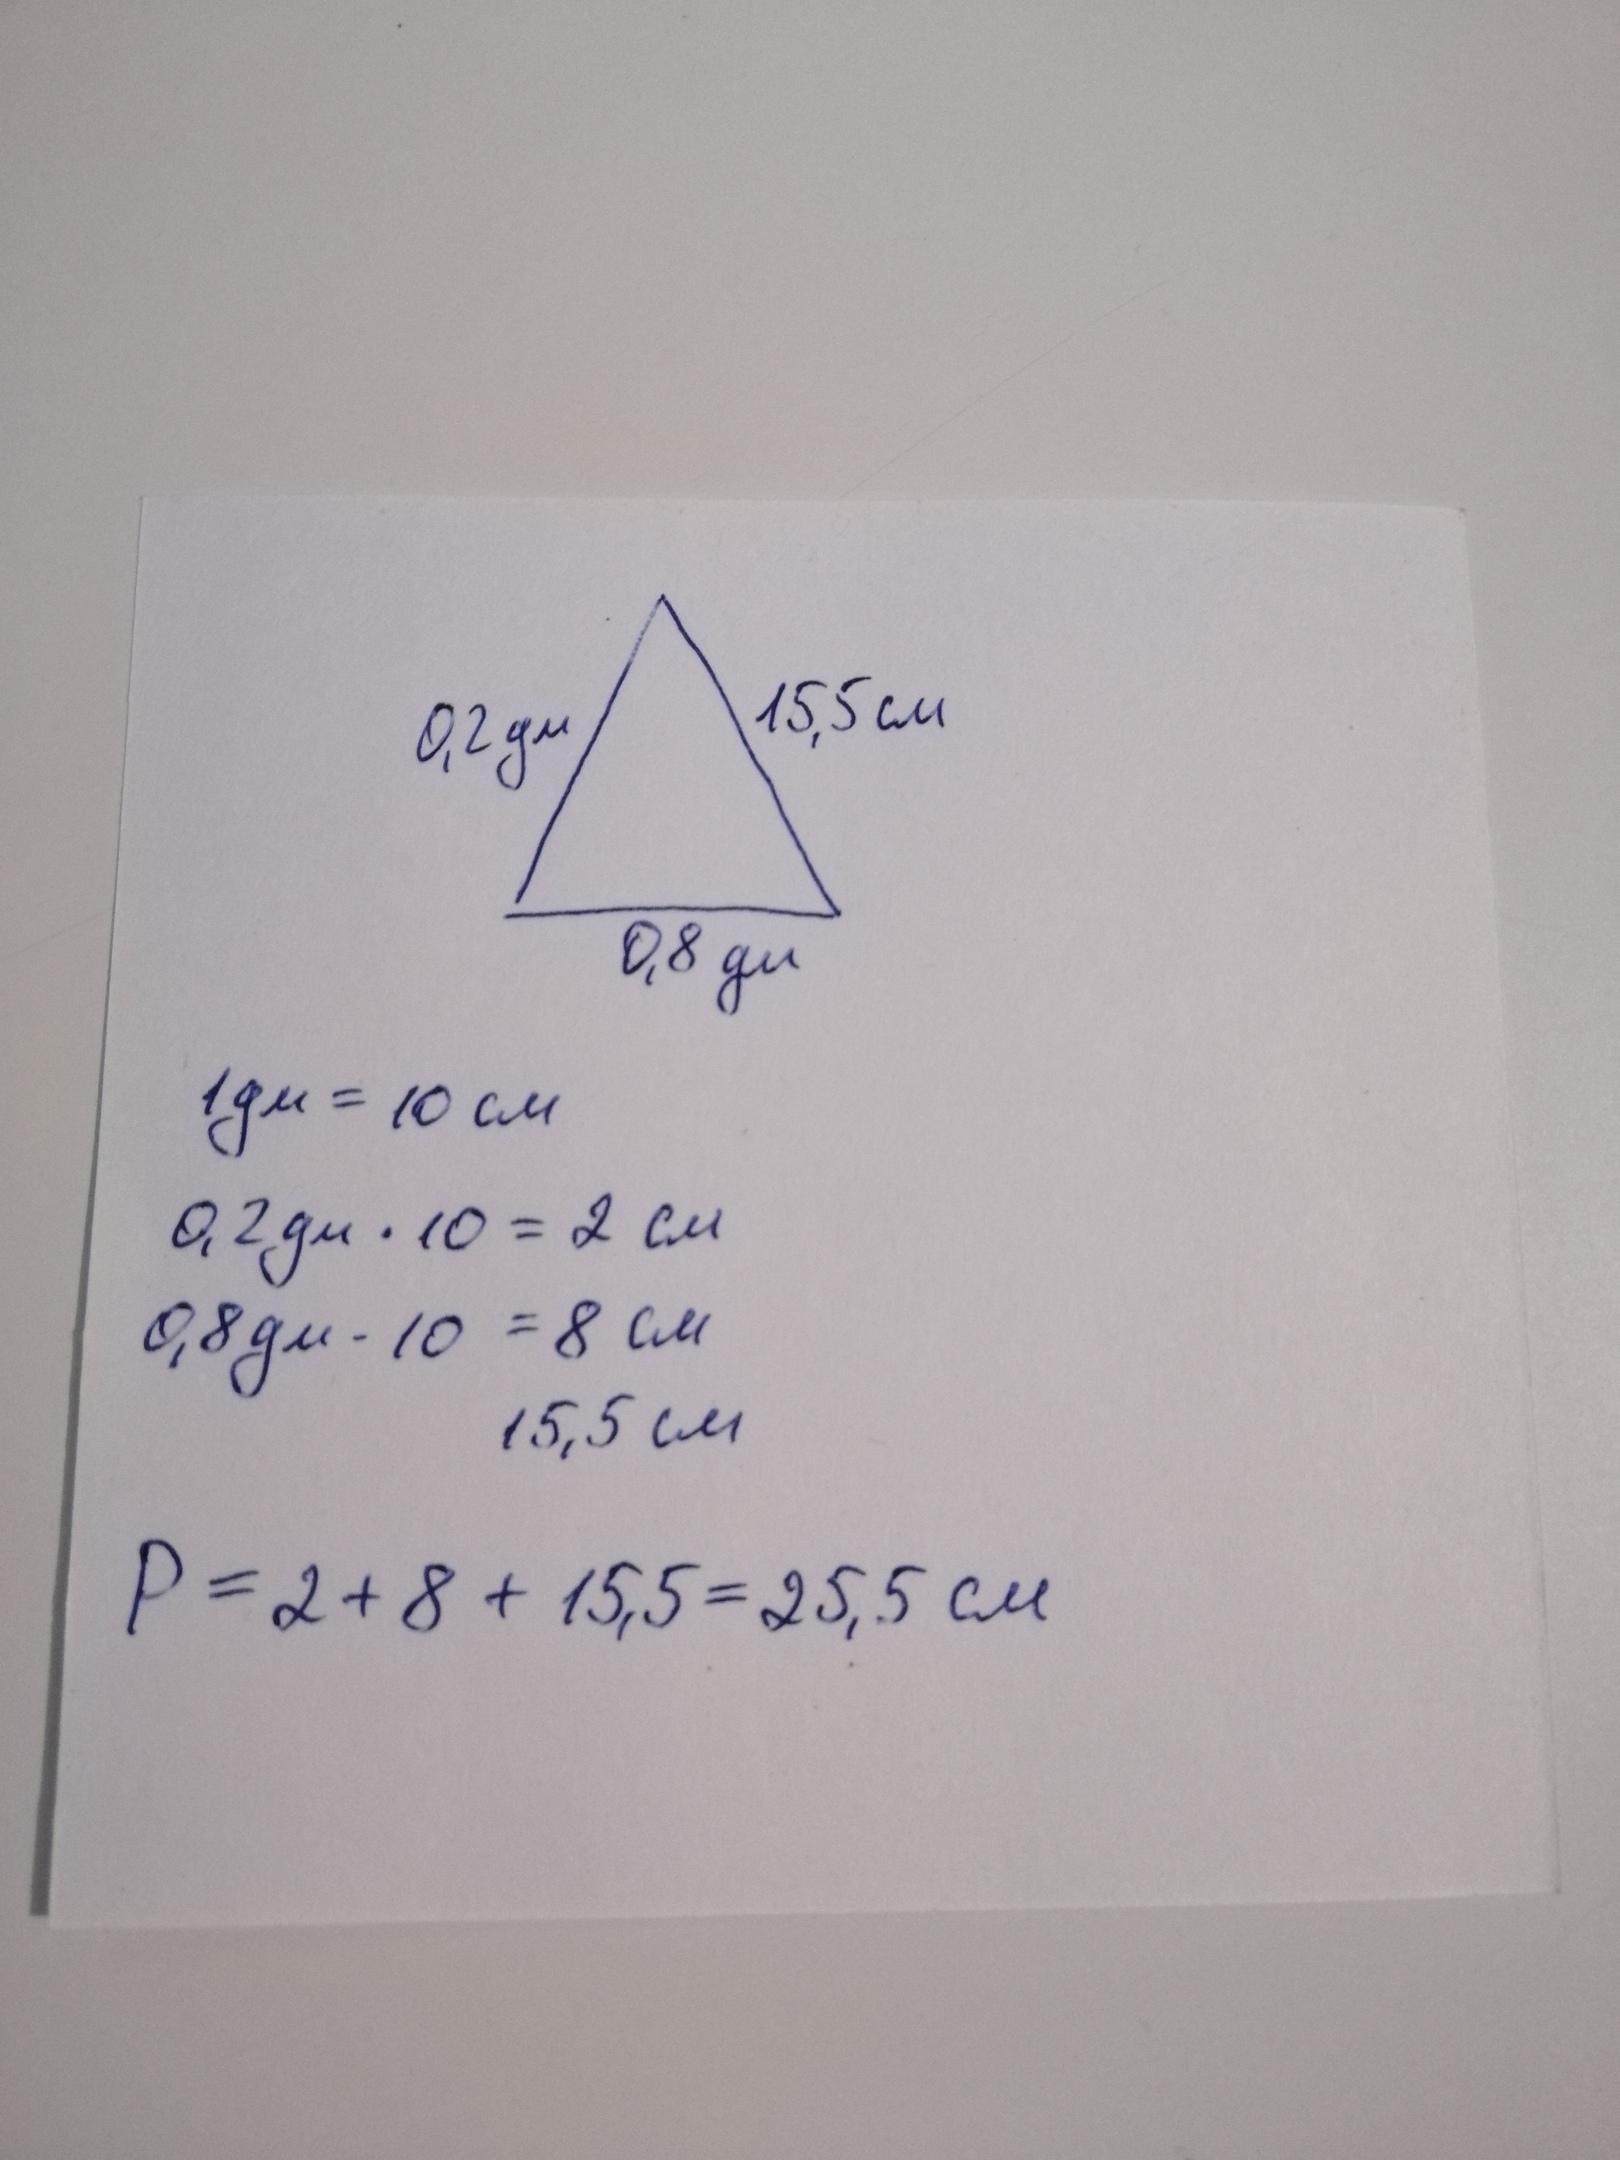 0,2 дм
15,5 см
0,8 дм
1 дм = 10 см
0,2 дм · 10 = 2 см
0,8 дм · 10 = 8 см
15,5 см
P = 2 + 8 + 15,5 = 25,5 см